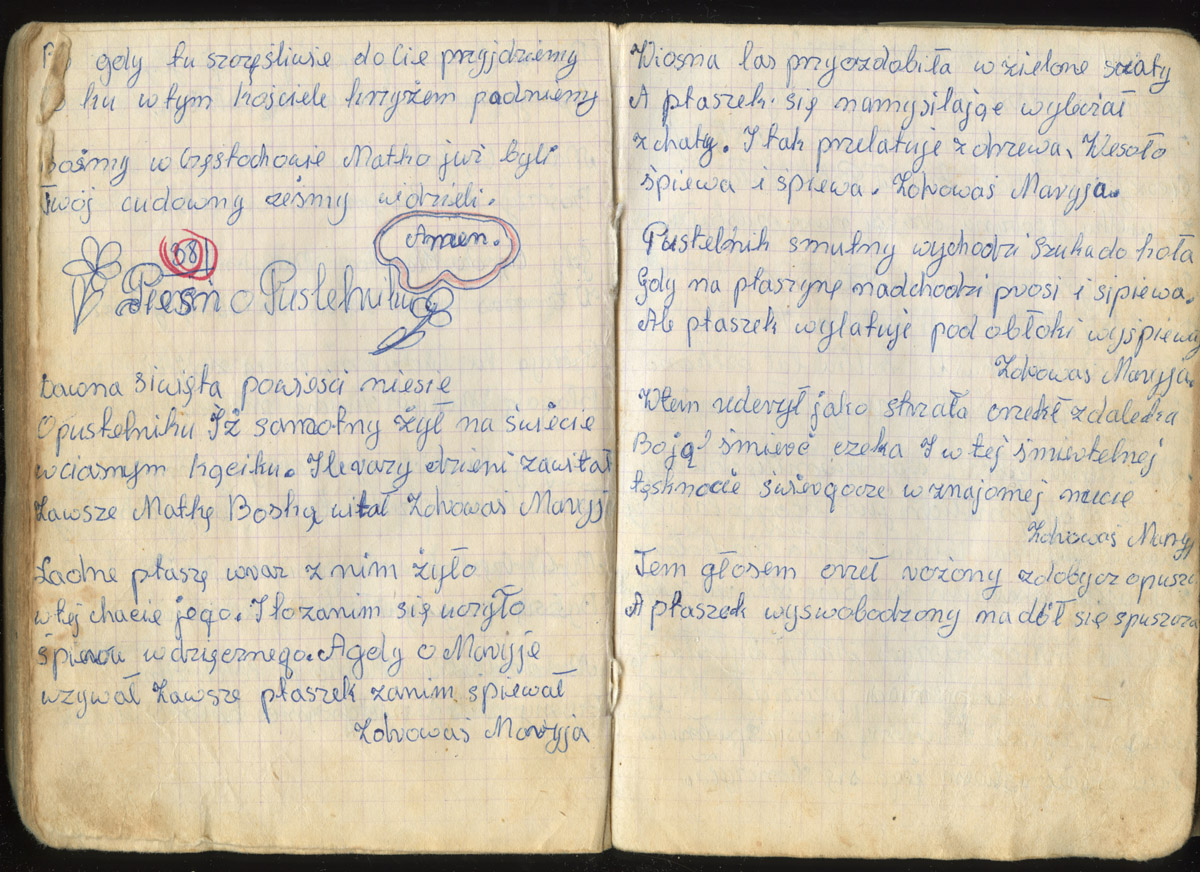 gdy tu szczęśliwie do Cie przyjdziemy
ku w tym kościele krzyżem padniemy
bośmy w Częstochowie Matko już byli
Twój cudowny ześmy widzieli.
Amen.
381
Pieśń o Pustelniku
Dawna święta powieści niesie
O pustelniku Iż samotny żył na świecie
w ciasnym kąciku. Ile razy dzień zawitał
Zawsze Matkę Boską witał Zdrowaś Maryja
Ładne ptaszę wraz z nim żyło
w tej chacie jego. I to za nim się uczyło
śpiewu wdzięcznego. A gdy o Maryję
wzywał Zawsze ptaszek zanim śpiewał
Zdrowaś Maryja
Wiosna las przyozdobiła w zielone szaty
A ptaszek się namyślając wyleciał
z chaty. I tak przelatuje z drzewa. Wesoło
śpiewa i śpiewa. Zdrowaś Maryja.
Pustelnik smutny wychodzi Szuka do koła
Gdy na ptaszynę nadchodzi prosi i śpiewa.
Ale ptaszek wylatuje pod obłoki wyśpiewuj
Zdrowaś Maryja.
Wtem uderzył jako strzała orzeł z daleka
Bojąś śmierć czeka I w tej śmiertelnej
tęsknocie świergocze w znajomej nucie
Zdrowaś Maryj
Tem głosem orzeł rażony zdobycz opuszc
A ptaszek wyswobodzony na dół się spuszcza